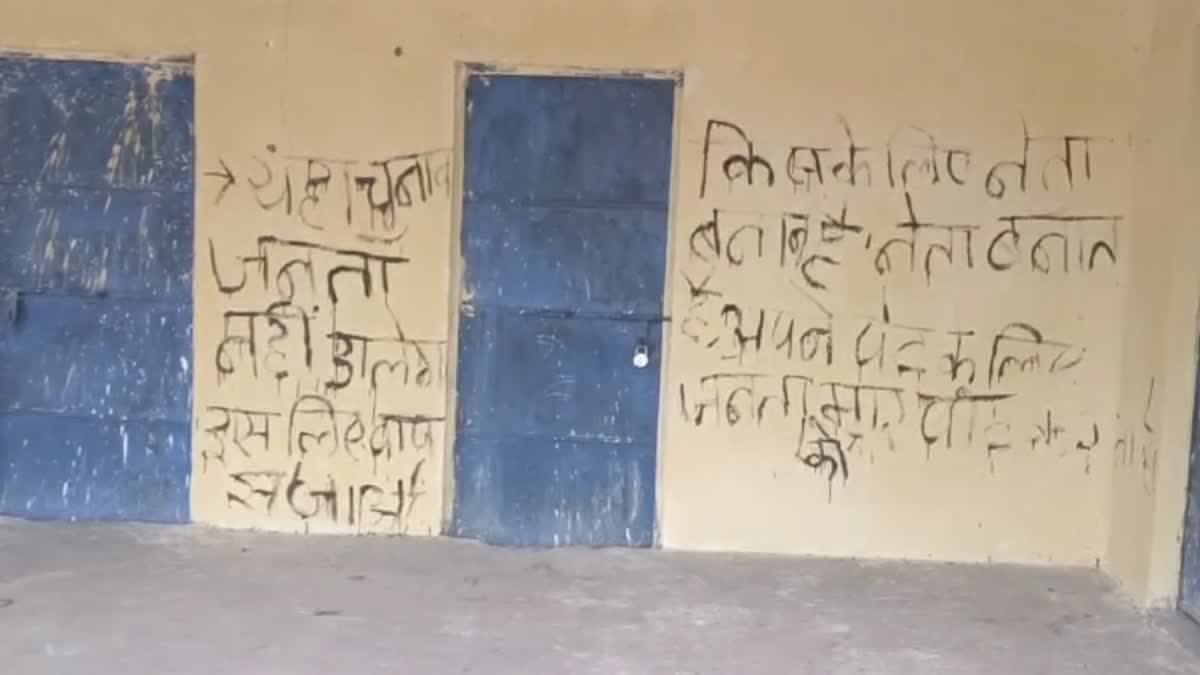 → यहा चुनाव
जनता
नहीं डालेगा
इस लिए वापस
जाओ
किसके लिए नेता
बनाना है, नेता बनात
है अपने पेट के लिए
जनता को मार पीट